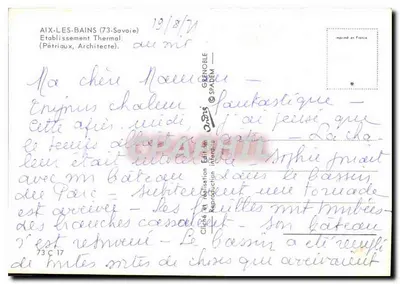 AIX-LES-BAINS (73-Savoie)
Etablissement Thermal
(Pétriaux, Architecte).
19/8/71
Imprimé en France
Ma chère Maman -
Toujours chaleur fantastique -
Cette après midi j'ai pensé que
le temps allait - La cha
leur était Sophie jouait
avec un bateau dans le bassin
du Parc - Subitement une tornade
est arrivée - Les feuilles ont tombées
des branches cassaient - Son bateau
s'est retourné - Le bassin a été rempli
de toutes sortes de choses qui arrivaient
73 C 17
GRENOBLE
© SPADEM
Cliché et Réalisation Edition
Reproduction interdite